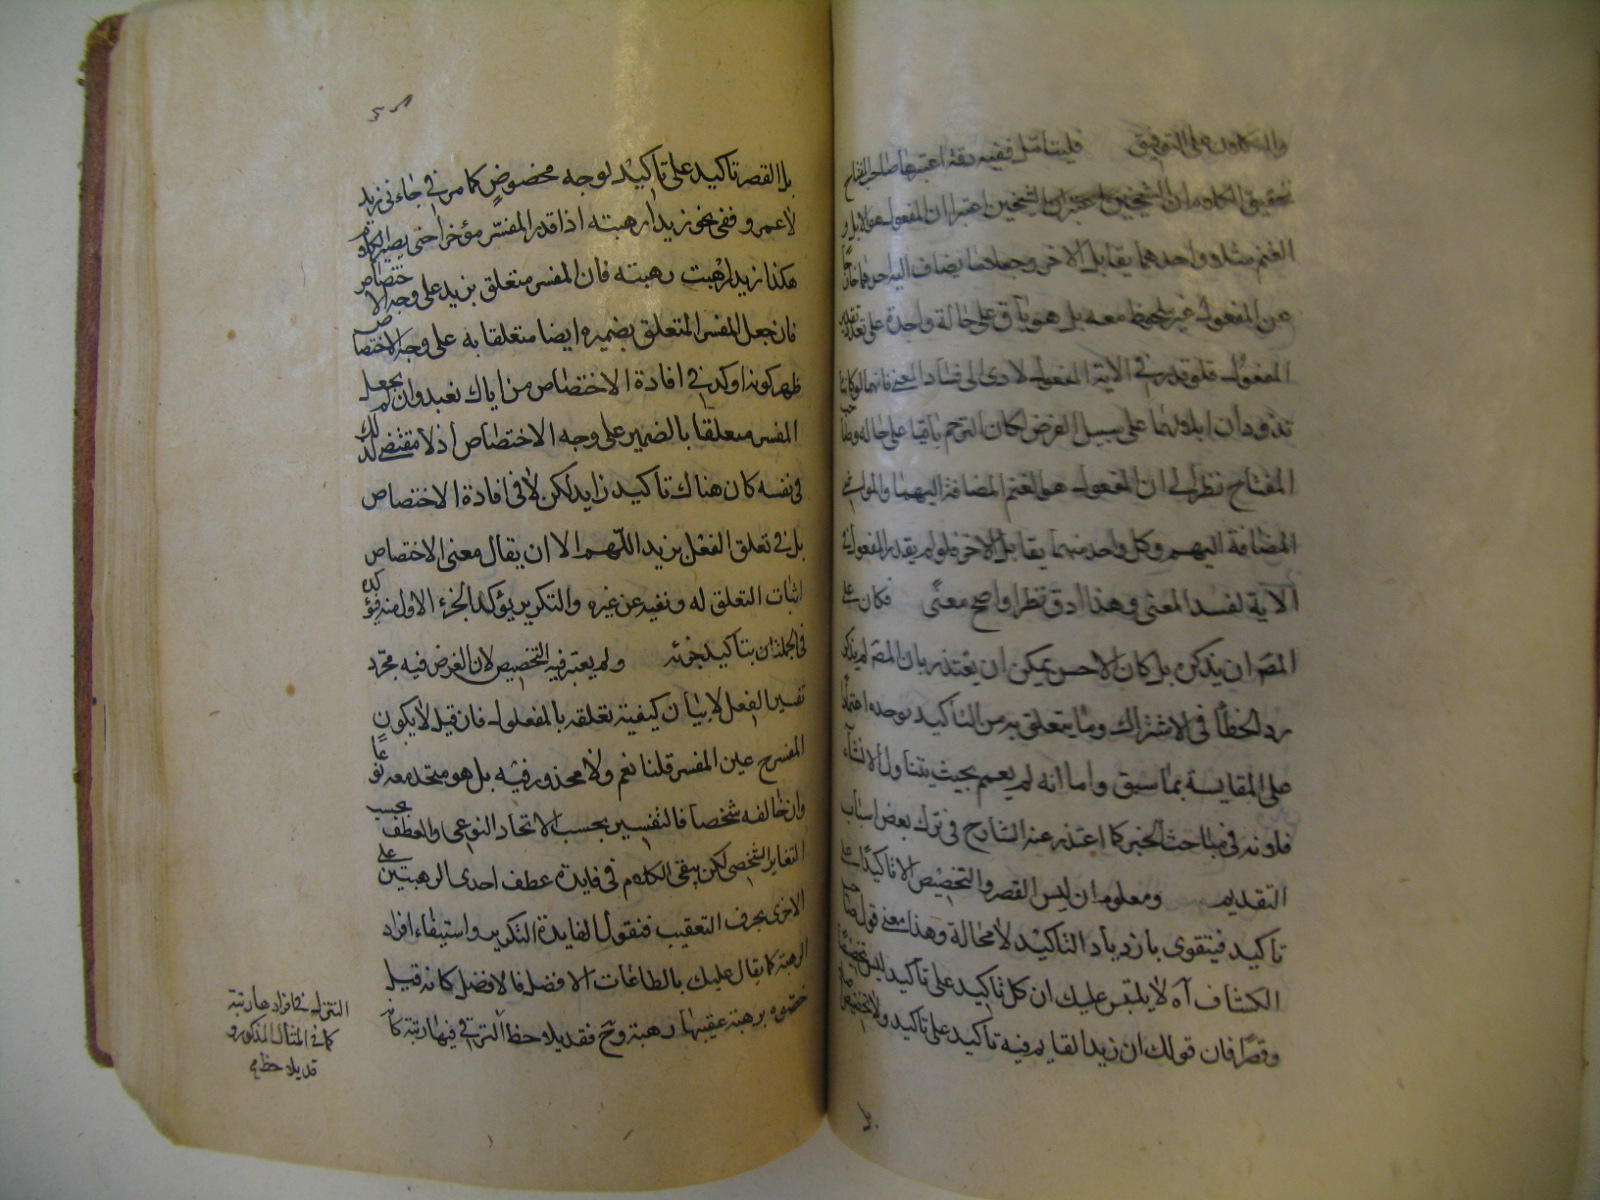 والسكون على التوفيق فليتأمل ففيه دقة اعتبرها صاحب المفتاح
تحقيق الكلام ان الشيخين اعتبرا ان المفعول هو الابل و
الغنم مثلا واحدهما يقابل الاخر وجعلا ما يضاف اليه احدهما خارجا
عن المفعول غير ملحوظ معه بل هو باق على حالة واحدة على تقدير
المفعول فلو قدر في الاية المفعول لادى الى فساد المعنى فانهما لو كانتا
تذودان ابلا لهما على سبيل الفرض لكان الترحم باقيا على حاله وصاحب
المفتاح نظر الى ان المفعول هو الغنم المضافة اليهما والمواشي
المضافة اليهم وكل واحد منهما يقابل الاخر فلو لم يقدر المفعول في
الاية لفسد المعنى وهذا ادق نظرا واصح معنى فكان على
المصـ ان يذكره بل كان الاحسن يمكن ان يعتذر بان المصـ لم يذكر
رد الخطأ في الاشتراك وما يتعلق به من التأكيد بوحده اعتمادا
على المقايسة بما سبق واما انه لم يعمم بحيث يتناول الانشاء
فلانه في مباحث الخبر كما اعتذر عنه الشارح في ترك بعض اسباب
التقديم ومعلوم ان ليس القصر والتخصيص الا تاكيدا على
تاكيد فيتقوى بازدياد التاكيد لا محالة وهذا معنى قول صاحب
الكشاف اه لا يلتبس عليك ان كل تاكيد على تاكيد ليس تخصيصا
وقصرا فان قولك ان زيدا لقايم فيه تاكيد على تاكيد ولا تخصيص
بل القصر تاكيد على تاكيد لوجه مخصوص كما مر في جاءني زيد
لا عمرو ففي نحو زيدا رهبته اذا قدر المفسر مؤخرا حتى يصير الكلام
هكذا زيدا رهبت رهبته فان المفسر متعلق بزيد على وجه الاختصاص
فان جعل المفسر المتعلق بضميره ايضا متعلقا به على وجه الاختصاص
ظهر كونه اوكد في افادة الاختصاص من اياك نعبد وان لم يجعل
المفسر متعلقا بالضمير على وجه الاختصاص اذ لا مقتضى لذلك
في نفسه كان هناك تاكيد زايد لكن لا في افادة الاختصاص
بل في تعلق الفعل بزيد اللهم الا ان يقال معنى الاختصاص
اثبات التعلق له ونفيه عن غيره والتكرير يؤكد الجزء الاول منه فيؤكده
في الجملة ان بتاكيد جزئه ولم يعتبر فيه التخصيص لان الغرض فيه مجرد
تفسير الفعل لا بيان كيفية تعلقه بالمفعول فان قيل لا يكون
المفسر ح عين المفسر قلنا نعم ولا محذور فيه بل هو متحد معه نوعا
وان خالفه شخصا فالتفسير بحسب الاتحاد النوعي والعطف بحسب
التغاير الشخصي لكن يبقى الكلام في فايدة عطف احدى الرهبتين على
الاخرى بحرف التعقيب فنقول الفايدة التكرير واستيفاء افراد
الرهبة كما يقال عليك بالطاعات الافضل فالافضل كانه قيل
خصوه برهبة عقيبها رهبة وح فقد يلاحظ الترقي فيها رتبة كما
التنزل في افرادها رتبة
كما في المثال المذكور و
قد يلاحظ